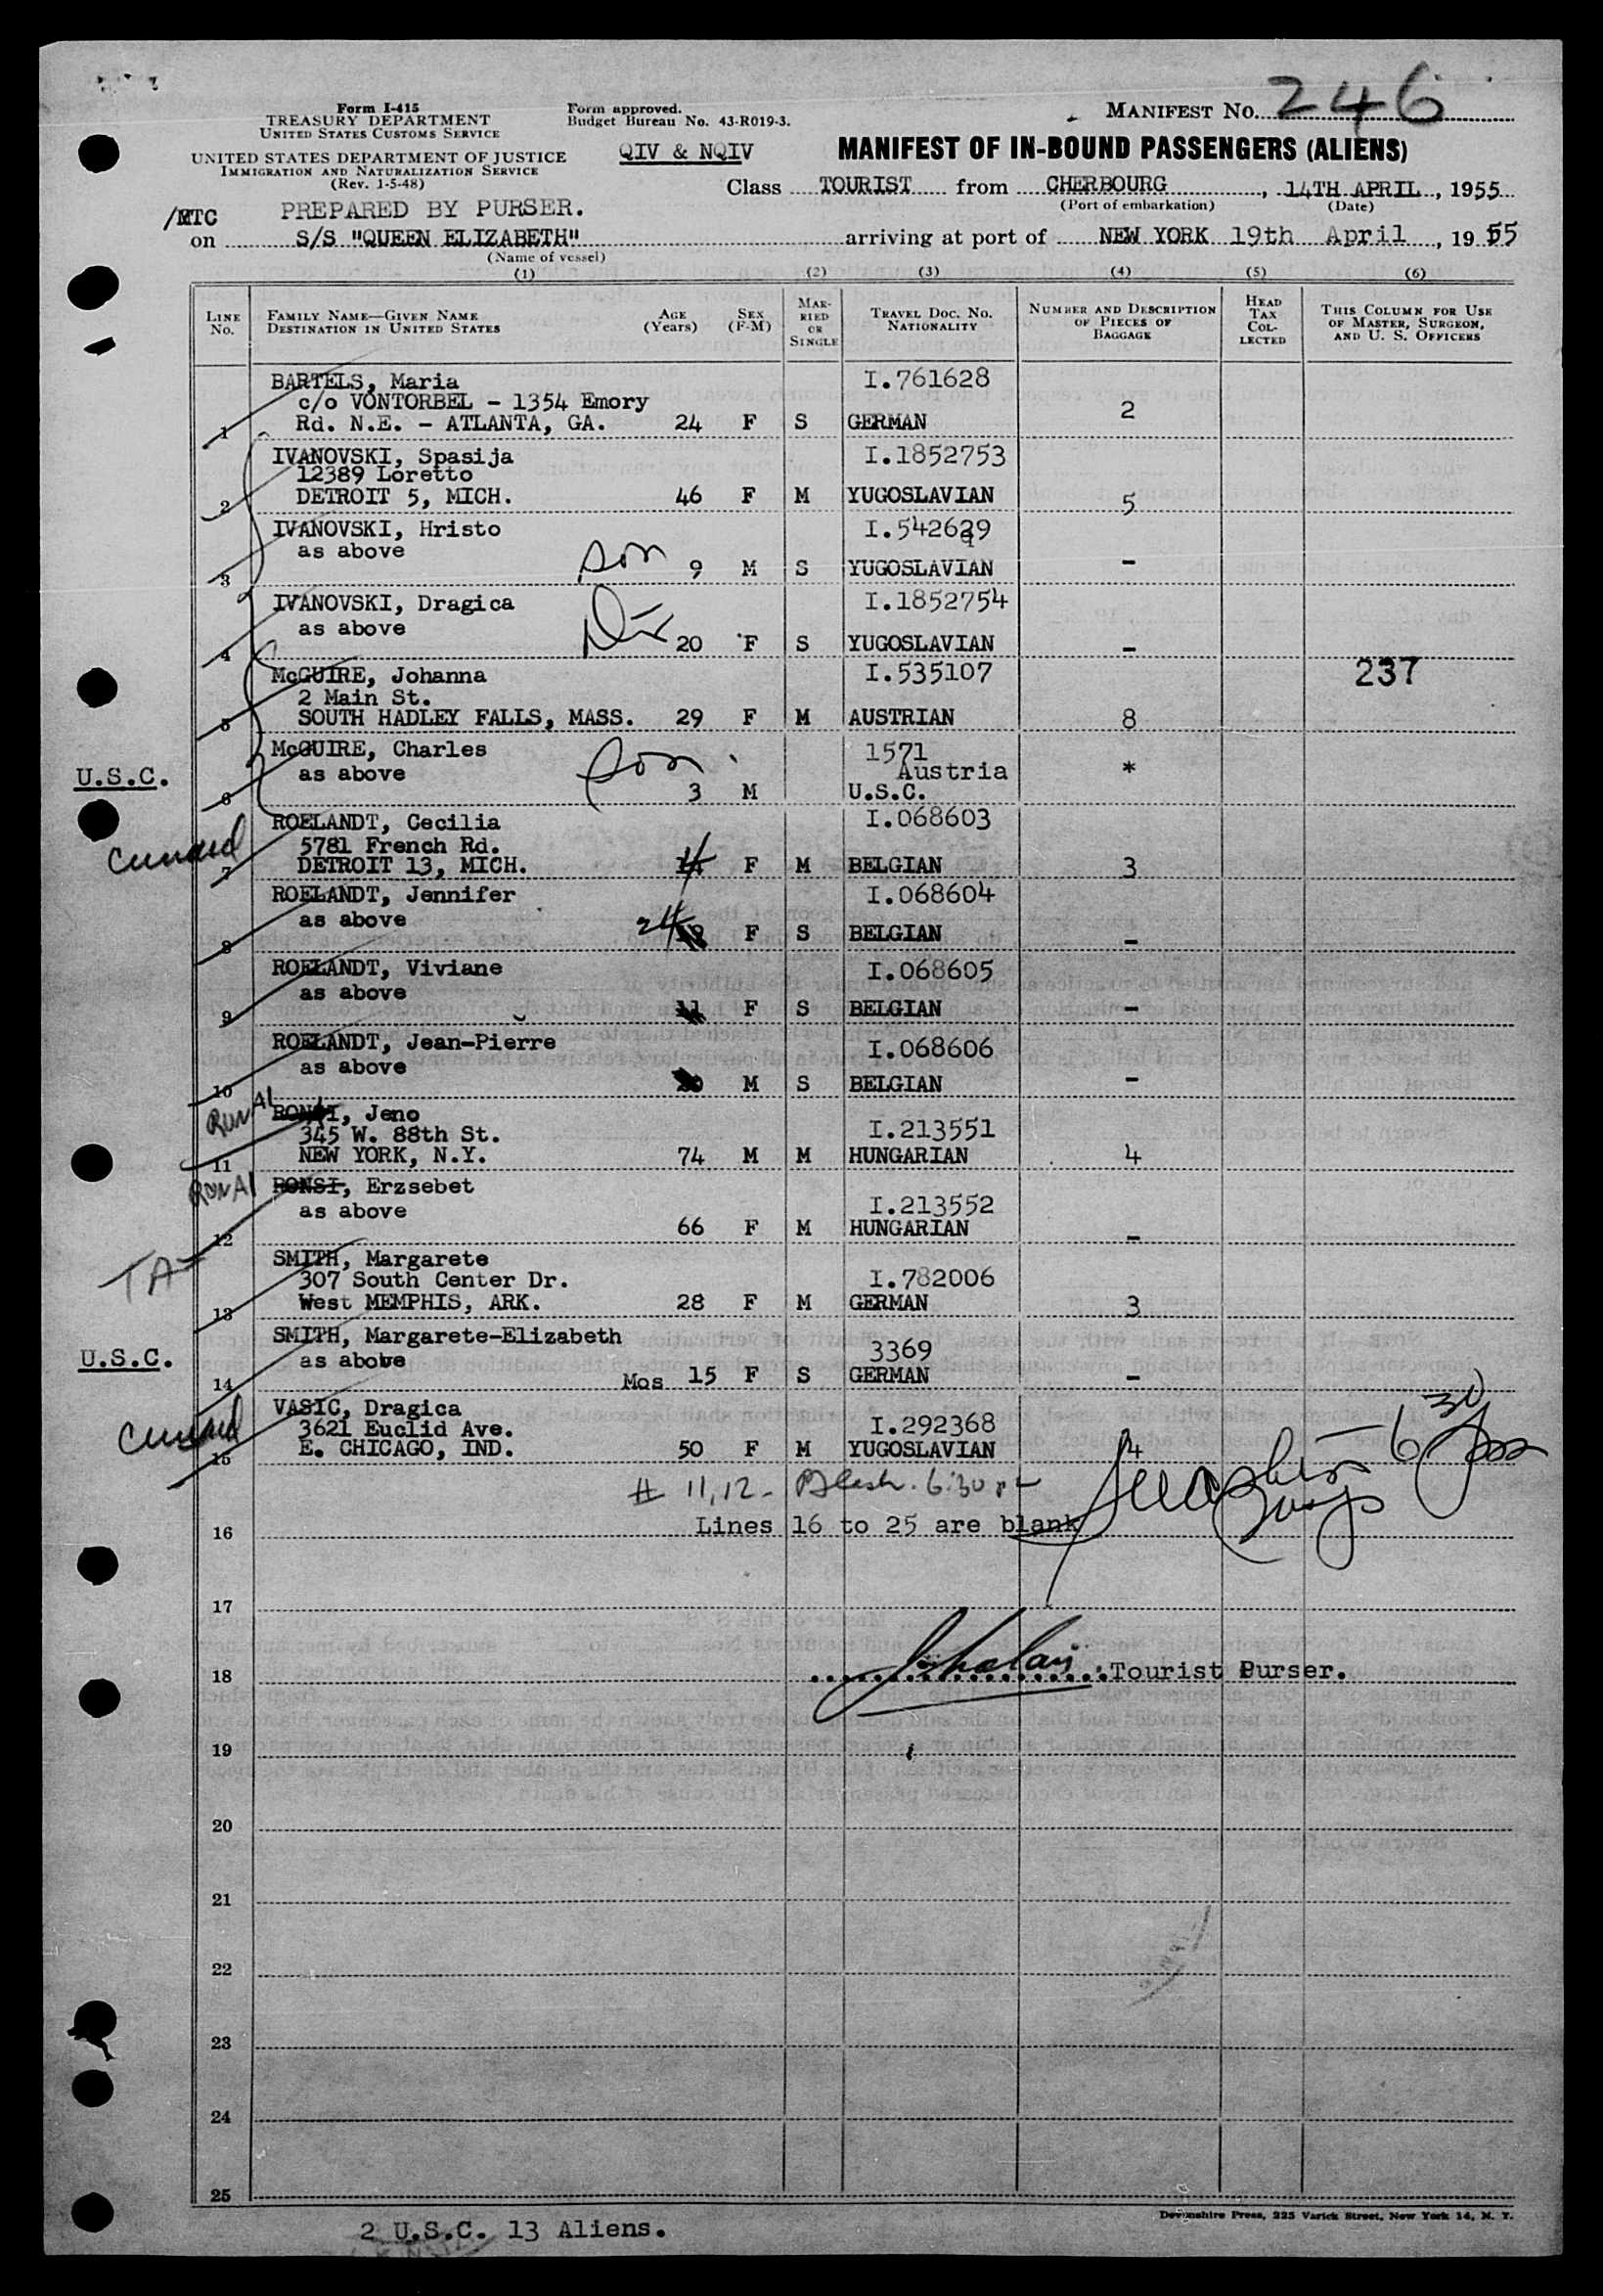 Form I-415
TREASURY DEPARTMENT
UNITED STATES CUSTOMS SERVICE
UNITED STATES DEPARTMENT OF JUSTICE
IMMIGRATION AND NATURALIZATION SERVICE
(Rev. 1-5-48)
Form approved.
Budget Bureau No. 43-R019-3.
QIV & NQIV
MANIFEST NO. 246
MANIFEST OF IN-BOUND PASSENGERS (ALIENS)
Class TOURIST from CHERBOURG, 14TH APRIL, 1955
(Port of embarkation) (Date)
/MTC PREPARED BY PURSER.
on S/S "QUEEN ELIZABETH" arriving at port of NEW YORK 19th April, 1955
(Name of vessel)
(1) (2) (3) (4) (5) (6)
LINE No. FAMILY NAME—GIVEN NAME DESTINATION IN UNITED STATES AGE (Years) SEX (F-M) MARRIED OR SINGLE TRAVEL DOC. NO. NATIONALITY NUMBER AND DESCRIPTION OF PIECES OF BAGGAGE HEAD TAX COLLECTED THIS COLUMN FOR USE OF MASTER, SURGEON, AND U. S. OFFICERS
BARTELS, Maria I.761628
c/o VONTORBEL - 1354 Emory 2
1 Rd. N.E. - ATLANTA, GA. 24 F S GERMAN
IVANOVSKI, Spasija I.1852753
12389 Loretto
2 DETROIT 5, MICH. 46 F M YUGOSLAVIAN 5
IVANOVSKI, Hristo I.542629
as above son
3 9 M S YUGOSLAVIAN -
IVANOVSKI, Dragica I.1852754
as above
4 20 F S YUGOSLAVIAN -
McGUIRE, Johanna I.535107 237
2 Main St.
5 SOUTH HADLEY FALLS, MASS. 29 F M AUSTRIAN 8
McGUIRE, Charles 1571
U.S.C. as above son Austria *
6 3 M U.S.C.
ROELANDT, Cecilia I.068603
Cunard 5781 French Rd.
7 DETROIT 13, MICH. F M BELGIAN 3
ROELANDT, Jennifer I.068604
as above
8 F S BELGIAN -
ROELANDT, Viviane I.068605
as above
9 11 F S BELGIAN -
ROELANDT, Jean-Pierre I.068606
as above
10 M S BELGIAN -
RONAI RONSI, Jeno I.213551
345 W. 88th St.
11 NEW YORK, N.Y. 74 M M HUNGARIAN 4
RONAI RONSI, Erzsebet I.213552
as above
12 66 F M HUNGARIAN -
TA SMITH, Margarete I.782006
307 South Center Dr.
13 West MEMPHIS, ARK. 28 F M GERMAN 3
SMITH, Margarete-Elizabeth 3369
U.S.C. as above
14 Mos 15 F S GERMAN -
VASIC, Dragica I.292368
Cunard 3621 Euclid Ave.
15 E. CHICAGO, IND. 50 F M YUGOSLAVIAN 4
# 11,12 - 6:30 pm
16 Lines 16 to 25 are blank
17
18 Tourist Purser.
19
20
21
22
23
24
25
Devonshire Press, 225 Varick Street, New York 14, N. Y.
2 U.S.C. 13 Aliens.